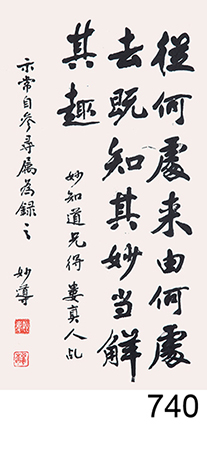 從何處来由何處
去既知其妙当解
其趣
妙知道兄得婁真人乩
示常自參尋属為錄之
妙尊
740